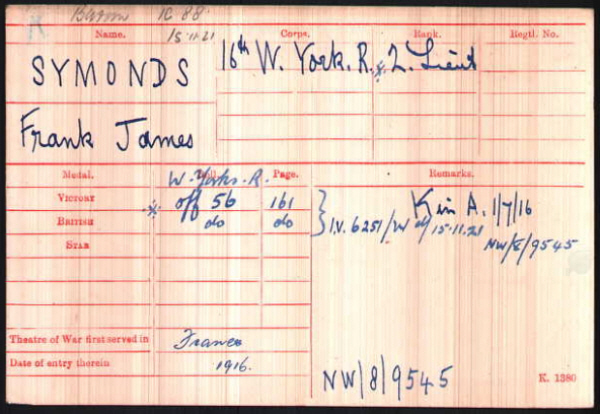 K 88
Name. Corps. Rank. Regtl. No.
15-11-21
SYMONDS 16th W. York. R. * 2. Lieut
Frank James
Medal. Roll. Page. Remarks.
W. Yorks. R.
VICTORY * off 56 161 Kin A. 1/7/16
BRITISH do do } I.V. 6251/W d/ 15.11.21
STAR NW/8/9545
Theatre of War first served in France
Date of entry therein 1916.
NW/8/9545 K. 1380